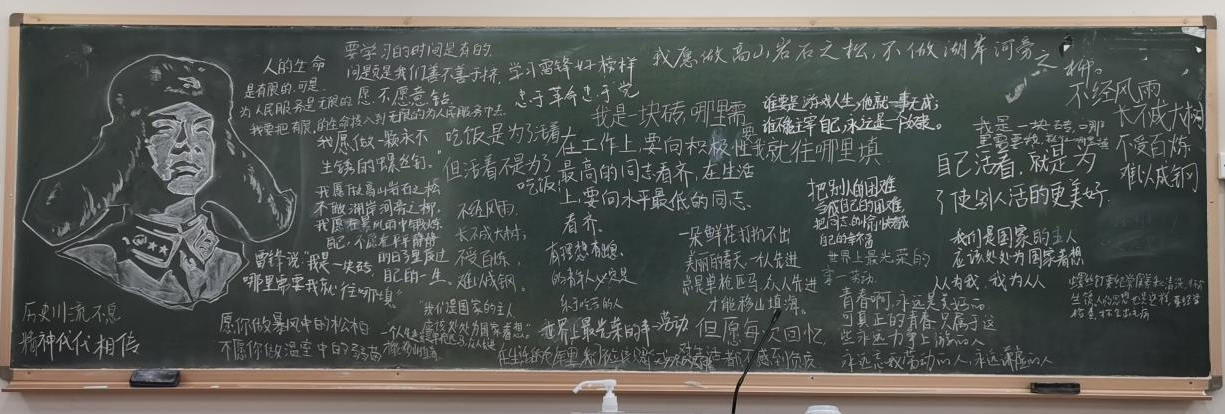 人的生命
是有限的,可是
为人民服务是无限的
我要把有限的生命投入到无限的为人民服务中去
要学习的时间是有的,
问题是我们善不善于挤,
愿不愿意钻
学习雷锋好榜样
忠于革命忠于党
我愿做高山岩石之松,不做湖岸河旁之柳。
我愿做一颗永不
生锈的螺丝钉.
我愿做高山岩石之松
不做湖岸河旁之柳,
我愿在暴风雨中锻炼
自己,不愿在平平静静
的日子里度过
自己的一生.
雷锋说"我是一块砖
哪里需要我就往哪填"
历史川流不息
精神代代相信
愿你做暴风中的松柏
不愿你做温室中的弱苗
吃饭是为了活着
但活着不是为了
吃饭!
不经风雨.
长不成大树;
不受百炼.
难以成钢。
"我们是国家的主人
应该处处为国家着想"
我是一块砖 哪里需要
我就往哪里填
在工作上,要向积极性
最高的同志看齐,在生活
上,要向水平最低的同志
看齐。
有理想有
世界上最光荣的事——劳动
谁要是游戏人生,他就一事无成;
谁不能主宰自己,永远是个奴隶。
一朵鲜花打扮不出
美丽的春天,一个人先进
总是单枪匹马,众人先进
才能移山填海。
但愿每次回忆
都不感到负疚
把别人的困难
当成自己的困难
把同志的愉快看成
自己的幸福
世界上最光荣的
事—劳动
青春啊,永远是美好的
可真正的青春,只属于这
些永远力争上游的人
永远忘我劳动的人,永远谦虚的人
我是一块砖,哪
自己活着,就是为
了使别人活的更美好.
我们是国家的主人
应该处处为国家着想
人人为我,我为人人
不经风雨
长不成大树
不受百炼
难以成钢